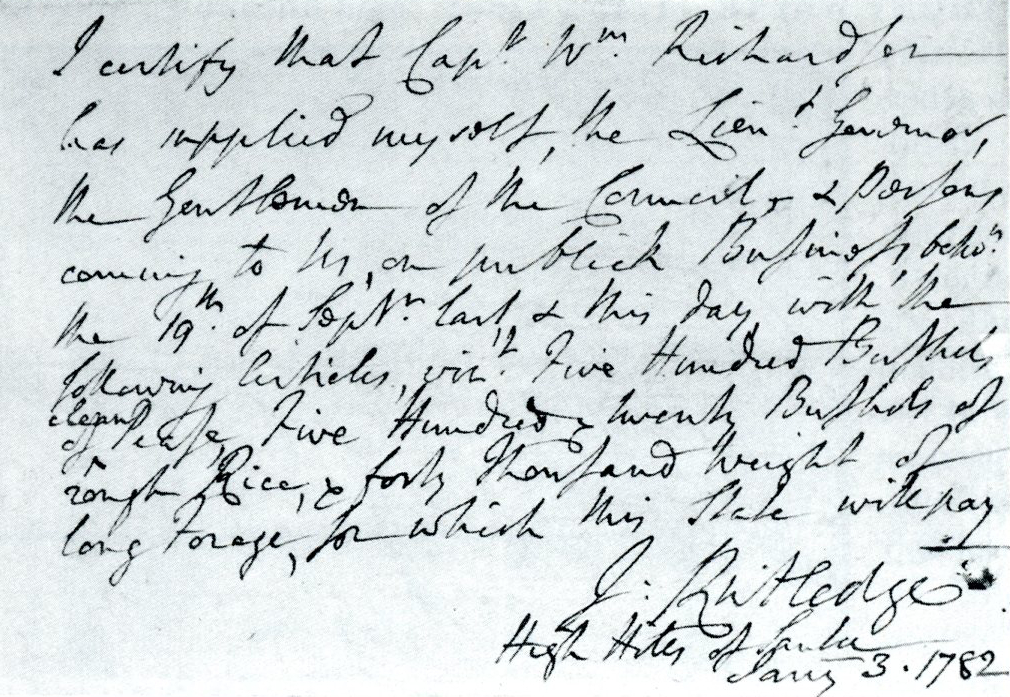 I certify that Capt. Wm. Richardson
has supplied myself, the Lieut. Governor,
the Gentlemen of the Council, & Persons
coming to Us, on publick Business betwn.
the 19th. of Septr. last, & this day, with the
following Articles, vizt. Five Hundred Bushels
of clean Pease, Five Hundred & twenty Bushels of
rough Rice, & forty Thousand weight of
long Forage, for which this State will pay
J: Rutledge
High Hills of Santee
Jany 3. 1782